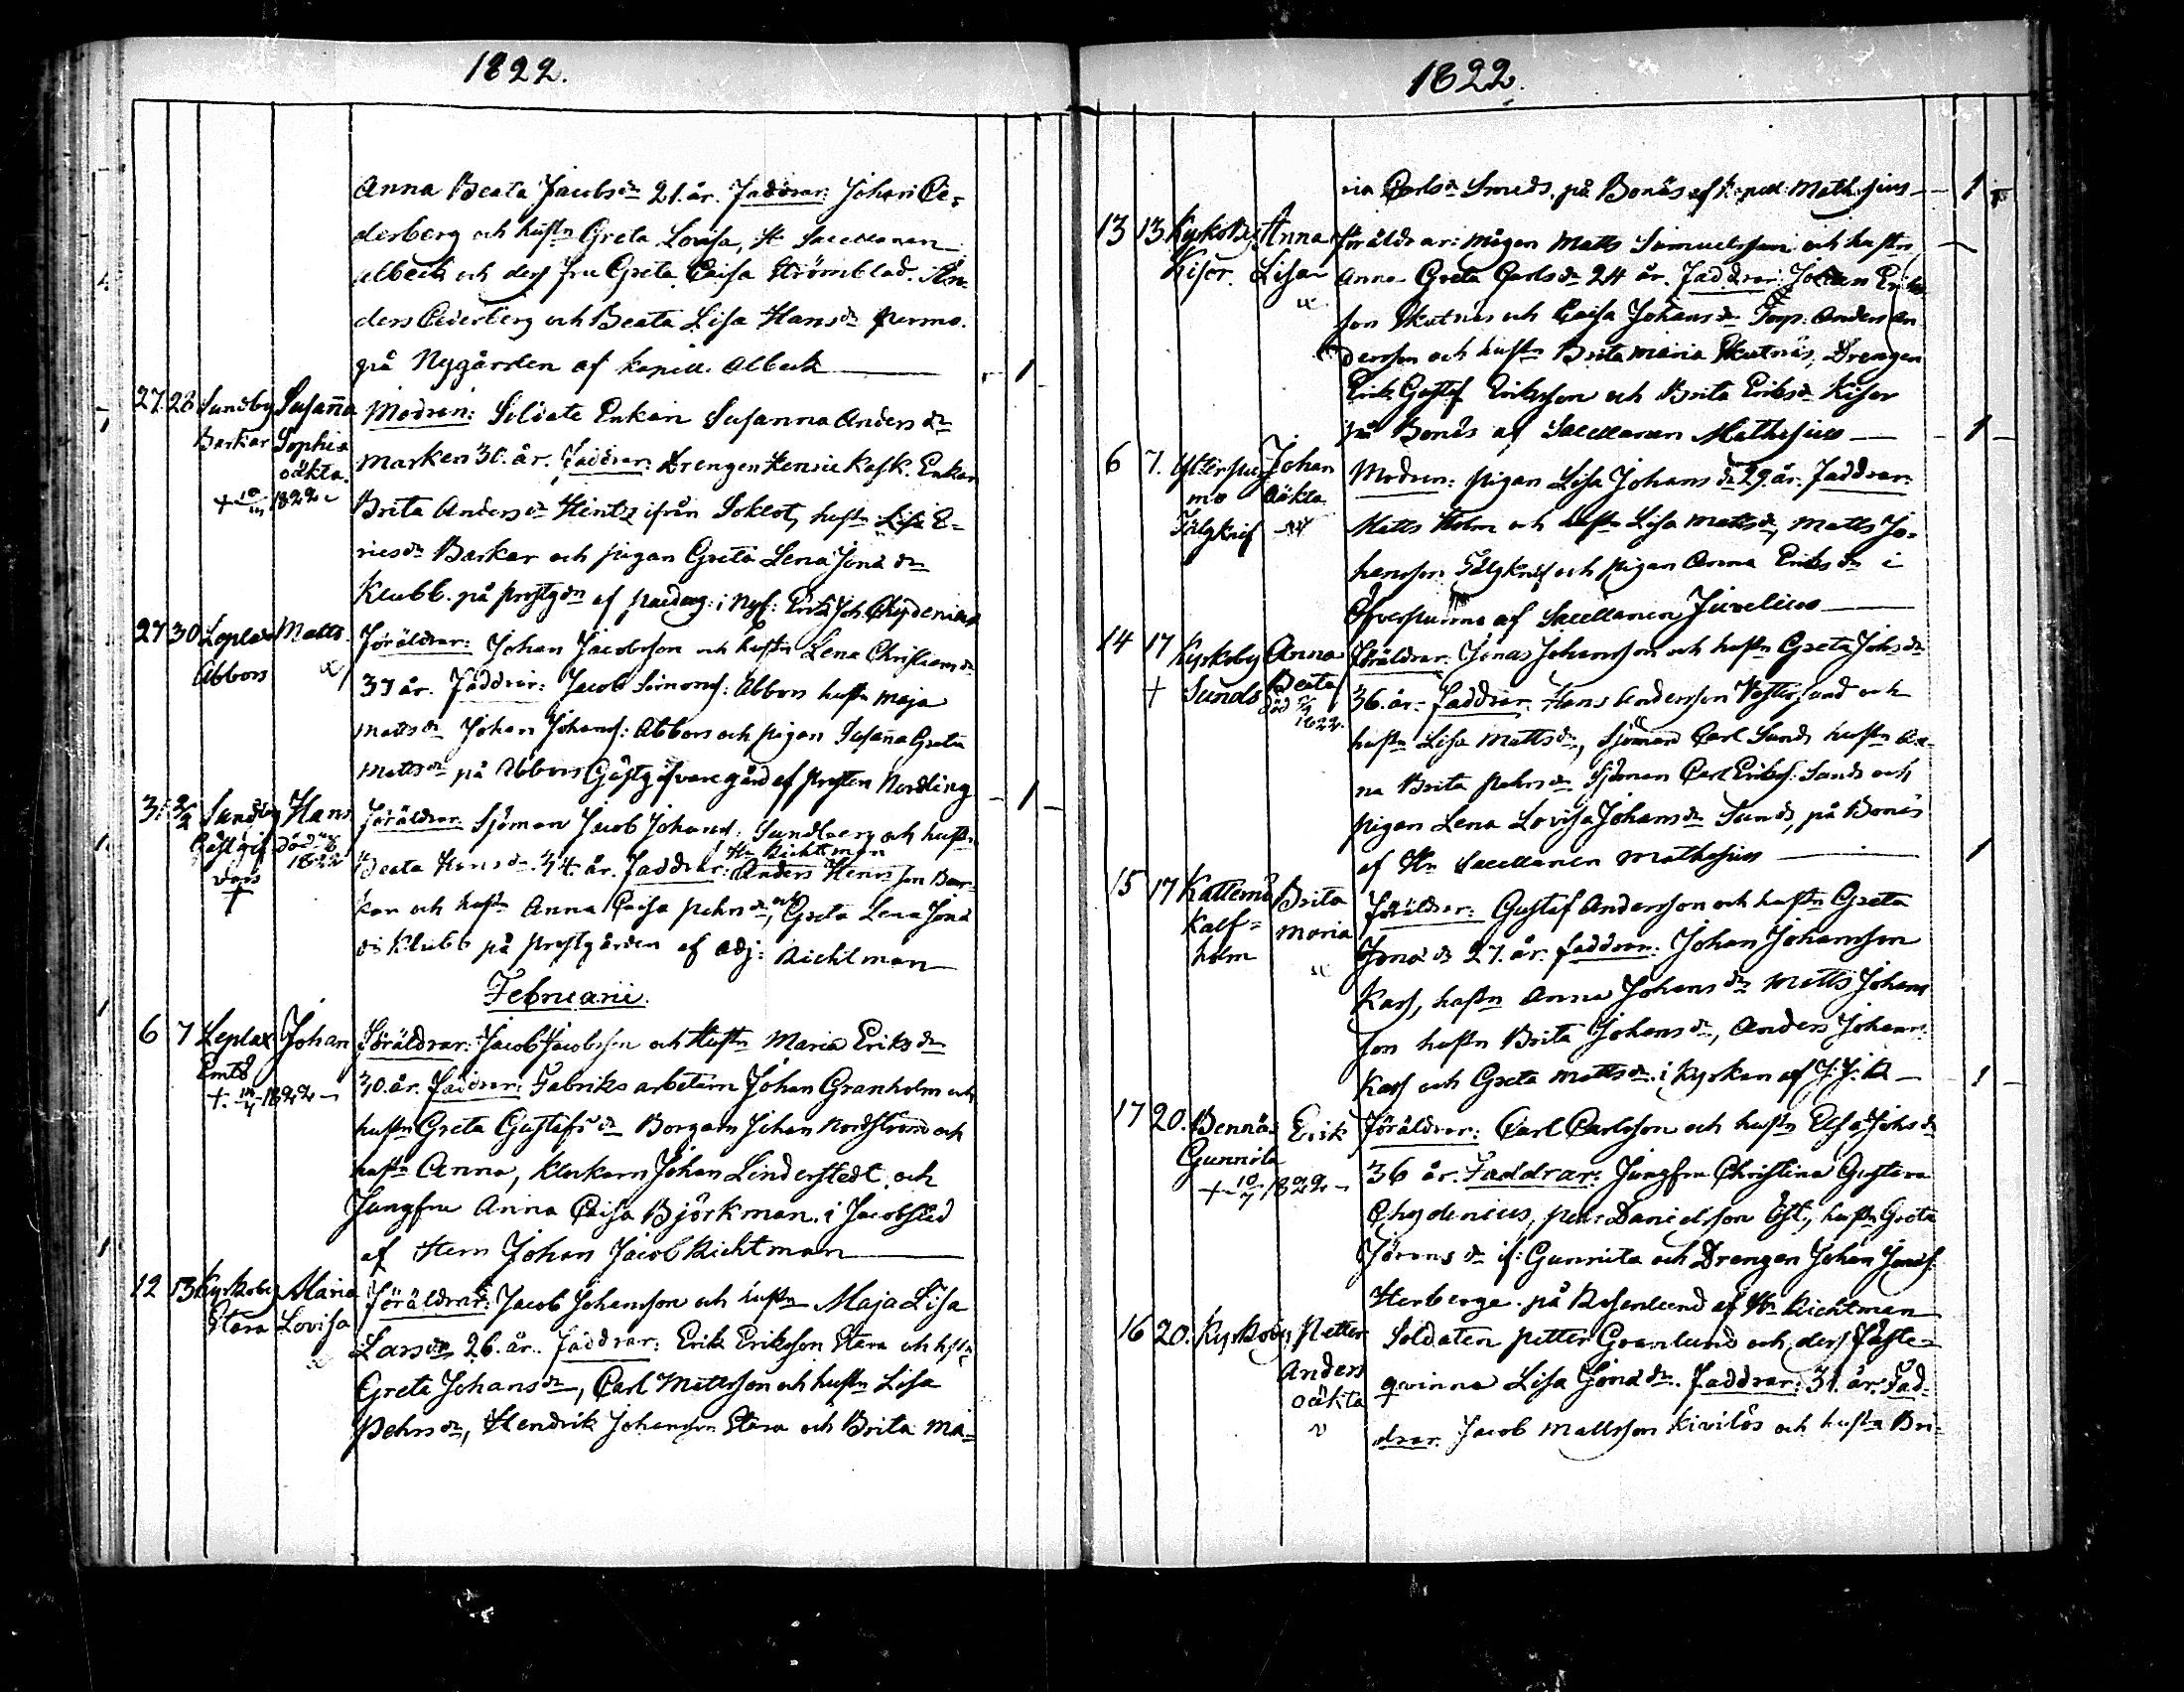 1822.
Anna Beata Jacobsdr 21. år. Faddrar: Johan Ce-
derberg och hustn Greta Lovisa, Hr Sacellanen
Albeck och dess fru Greta Caisa Strömblad. An-
ders Cederberg och Beata Lisa Hansdr Purmo.
på Nygården af kapell. Albeck
27. 28 Sundby Susanna Modren: Soldate Enkan Susanna Andersdr
Barkar Sophia oäkta. Marken 30. år. Faddrar: Drengen Henric Kask. Enkan
1822 Brita Andersdr Hintz ifrån Soklot, hustn Lisa E-
ricsdr Barkar och pigan Greta Lena Jonädr
Klubb. på prostgdn af paedag: i Nyk: Erik Joh. Chydenius
27 30 Leplax Matts. Föräldrar: Johan Jacobsson och hustn Lena Christiansdr
Abbors 37 år. Faddrar: Jacob Simons: Abbors hustn Maja
Mattsdr Johan Johans: Abbors och pigan Susanna Greta
Mattsdr på Abbors Gästgifvaregård af prosten Nordling
31 2/2 Sundby Hans Föräldrar Sjöman Jacob Johans: Sundberg och hustn
Gästgifvars död 1822 Beata Hansdr 34. år. Faddrar: Hr Richtman Anders Henrsson Bar-
kar och hustn Anna Caisa Pehrsdr, och Greta Lena Jonä
dr Klubb på prostgården af adj: Richtman
Februarii.
6 7 Leplax Johan Föräldrar: Jacob Jacobsson och Hustn Maria Eriksdr
Emts 1822 30. år. Faddrar: Fabriks arbetarn Johan Granholm och
hustn Greta Gustafsdr Borgarn Johan Nordstrand och
hustn Anna, Klockarn Johan Linderstedt, och
Jungfru Anna Caisa Björkman. i Jacobstad
af Herr Johan Jacob Richtman
12 13 Kyrkoby Maria Föräldrar: Jacob Johansson och hustn Maja Lisa
Stara Lovisa Larsdr 26. år. Faddrar: Erik Eriksson Stara och hstn
Greta Johansdr, Carl Mattsson och hustn Lisa
Pehrsdr, Hendrik Johansson Stara och Brita Ma-
1822.
ria Carlsdr Smeds. på Bonäs af Kapell: Mathesius
13 13 Kyrkoby Anna Föräldrar: mågen Matts Samuelsson och hustn
Kisor. Lisa Anna Greta Carlsdr 24 år. Faddrar: Johan Eriks-
son Skutnäs och Caisa Johansdr Torp: Anders An-
dersson och hustn Brita Maria Skutnäs, Drengen
Erik Gustaf Eriksson och Brita Eriksdr Kisor
på Bonäs af Sacellanen Mathesius
6 7. Ytterpurmo Johan Modren: pigan Lisa Johansdr 29. år. Faddrar:
Tälgknif oäkta Matts Holm och hustn Lisa Mattsdr, Matts Jo-
hansson Tälgknif och pigan Anna Eriksdr i
Öfverpurmo af Sacellanen Juvelius
14 17 Kyrkoby Anna Föräldrar: Jonas Johansson och hustn Greta Johsdr
Sunds Beata död 1822. 36. år. Faddrar: Hans Andersson Vestersund och
hustn Lisa Mattsdr, Sjöman Carl Sund hustn An-
na Brita Pehrsdr Sjöman Carl Eriks: Sund och
pigan Lena Lovisa Johansdr Sund, på Bonäs
af Hr Sacellanen Mathesius
15 17 Katternö Brita Föräldrar: Gustaf Andersson och hustn Greta
Kalf-holm Maria Jonädr 27. år. Faddrar: Johan Johansson
Kass, hustn Anna Johansdr Matts Johans
son hustn Brita Johansdr, Anders Johans
Kass och Greta Mattsdr. i Kyrkan af J. J. R
17 20. Bennäs Erik Föräldrar: Carl Carlsson och hustn Elsa Johsdr
Gunnila 1822 36 år. Faddrar: Jungfru Christina Gustava
Chydenius, Pehr Danielsson Öst, hustn Greta
Jöransdr if: Gunnila och Drengen Johan Jons:
Herberge. på Rosenlund af Hr Richtman
16 20. Kyrkoby Petter Soldaten Petter Granlund och dess Fäste-
Anders oäkta qvinna Lisa Jonädr. Faddrar: 31. år. Fad-
drar Jacob Mattsson Kivilös och hustn Bri-